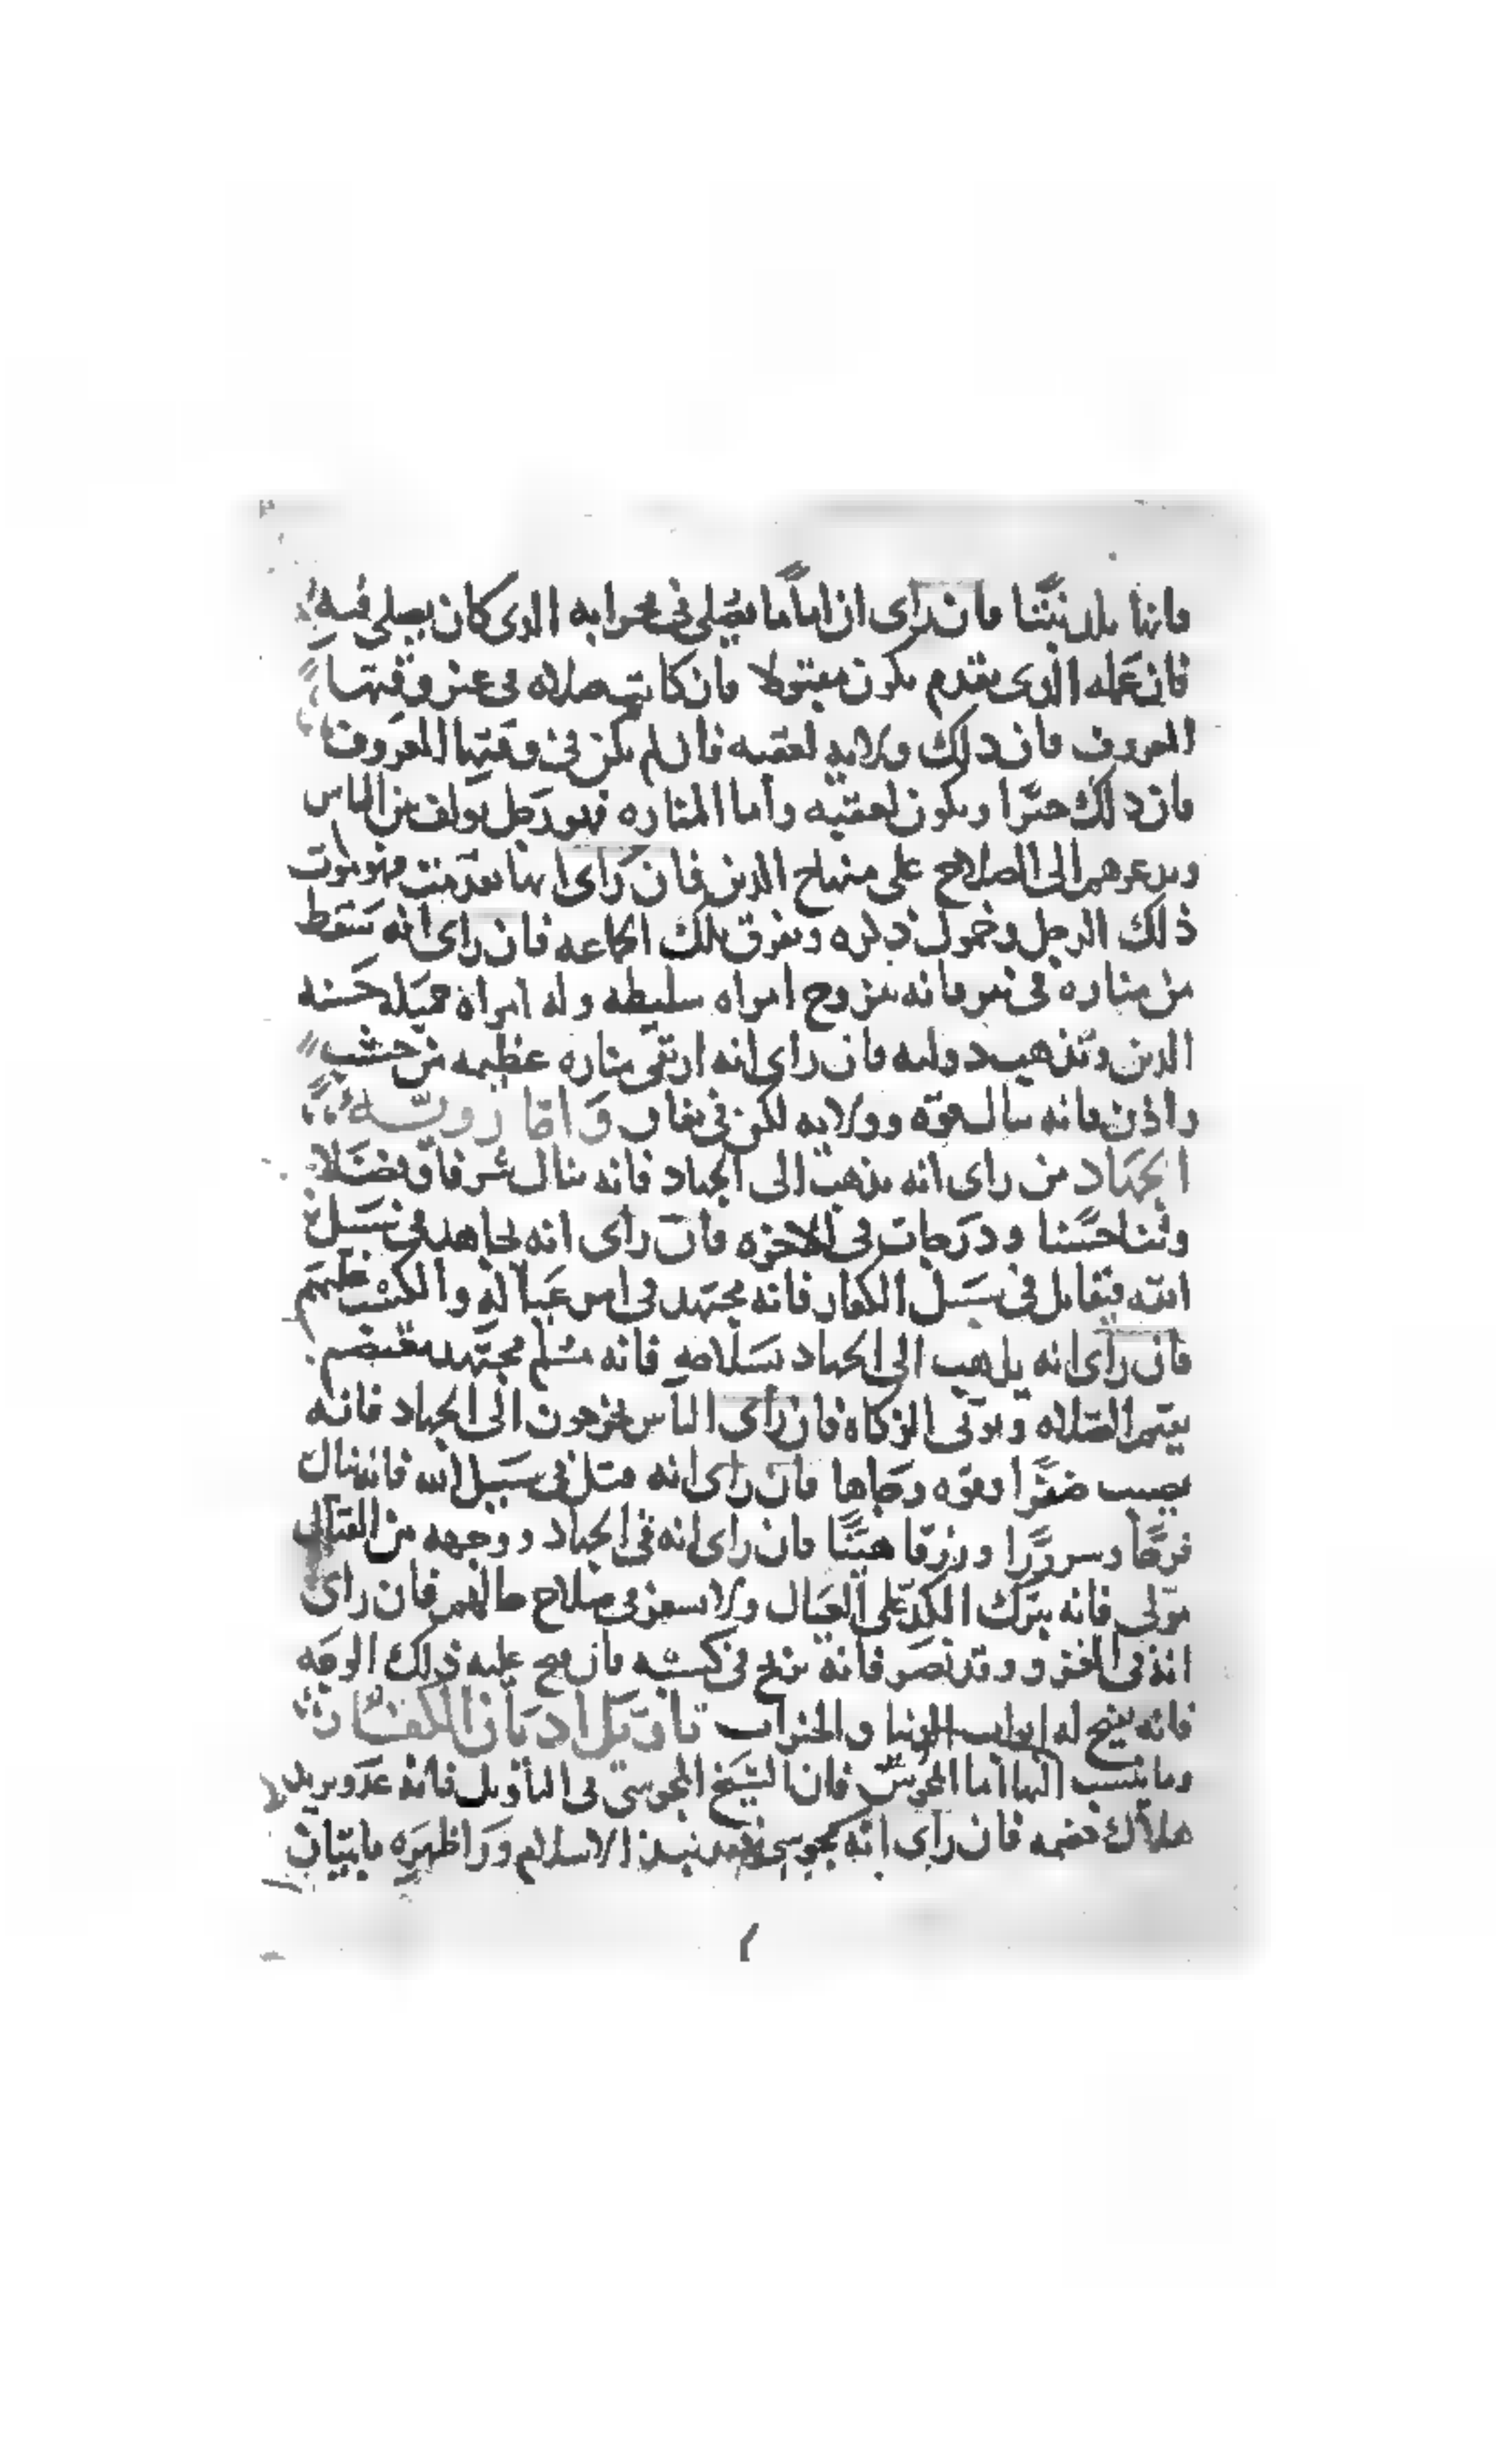 فانها تلد بنتا فان راى ان اماما يصلى فى محرابه الذى كان يصلى فيه
فان عمله الذى يقدم يكون مقبولا فان كانت صلاه فى غير وقتها
المعروف فان ذلك ولايه لعقبه فان لم يكن فى وقتها المعروف
فان ذلك خيرا ويكون لعقبه واما المناره فهو رجل يولف بين الناس
ويدعوهم الى الصلاح على منهاج الدين فان راى انها تهدمت فهو موت
ذلك الرجل وخمول ذكره وتفرق تلك الجاعه فان راى انه سقط
من مناره فى بير فانه يتزوج امراه سليطه وله امراه جميله حسنه
الدين وتذهب دولته فان راى انه ارتقى مناره عظيمه من خشب
واذن فانه ينال قوه وولايه لكن فى نفاق واما رويه
الجهاد من راى انه يذهب الى الجهاد فانه ينال شرفا وفضلا
وثنا حسنا ودرجات فى الاخره فان راى انه يجاهد فى سبيل
الله فيقاتل فى سبيل الكفار فانه مجتهد فى امر عياله والكسب عليهم
فان راى انه يذهب الى الجهاد بسلاحه فانه مسلم مجتهد
يقيم الصلاه ويوتى الزكاه فان راى الناس يخرجون الى الجهاد فانه
يصيب ظفرا وقوه وجاها فان راى انه قتل فى سبيل الله فانه ينال
فرحا وسرورا ورزقا هنيا فان راى انه فى الجهاد ووجهه من القتال
تولى فانه يترك الكد على العيال ولا يسعى فى صلاح حالهم فان راى
انه فى الغزو وقد نصر فانه يربح فى كسبه فان فتح عليه ذلك الوجه
فانه يفتح له ابواب الدنيا والخيرات تاويل اديان الكفار
وما ينسب اليها اما المجوس فان الشيخ المجوسى فى التاويل فانه عدو يريد
هلاك خصمه فان راى انه مجوسى فقد نبذ الاسلام ورا ظهره